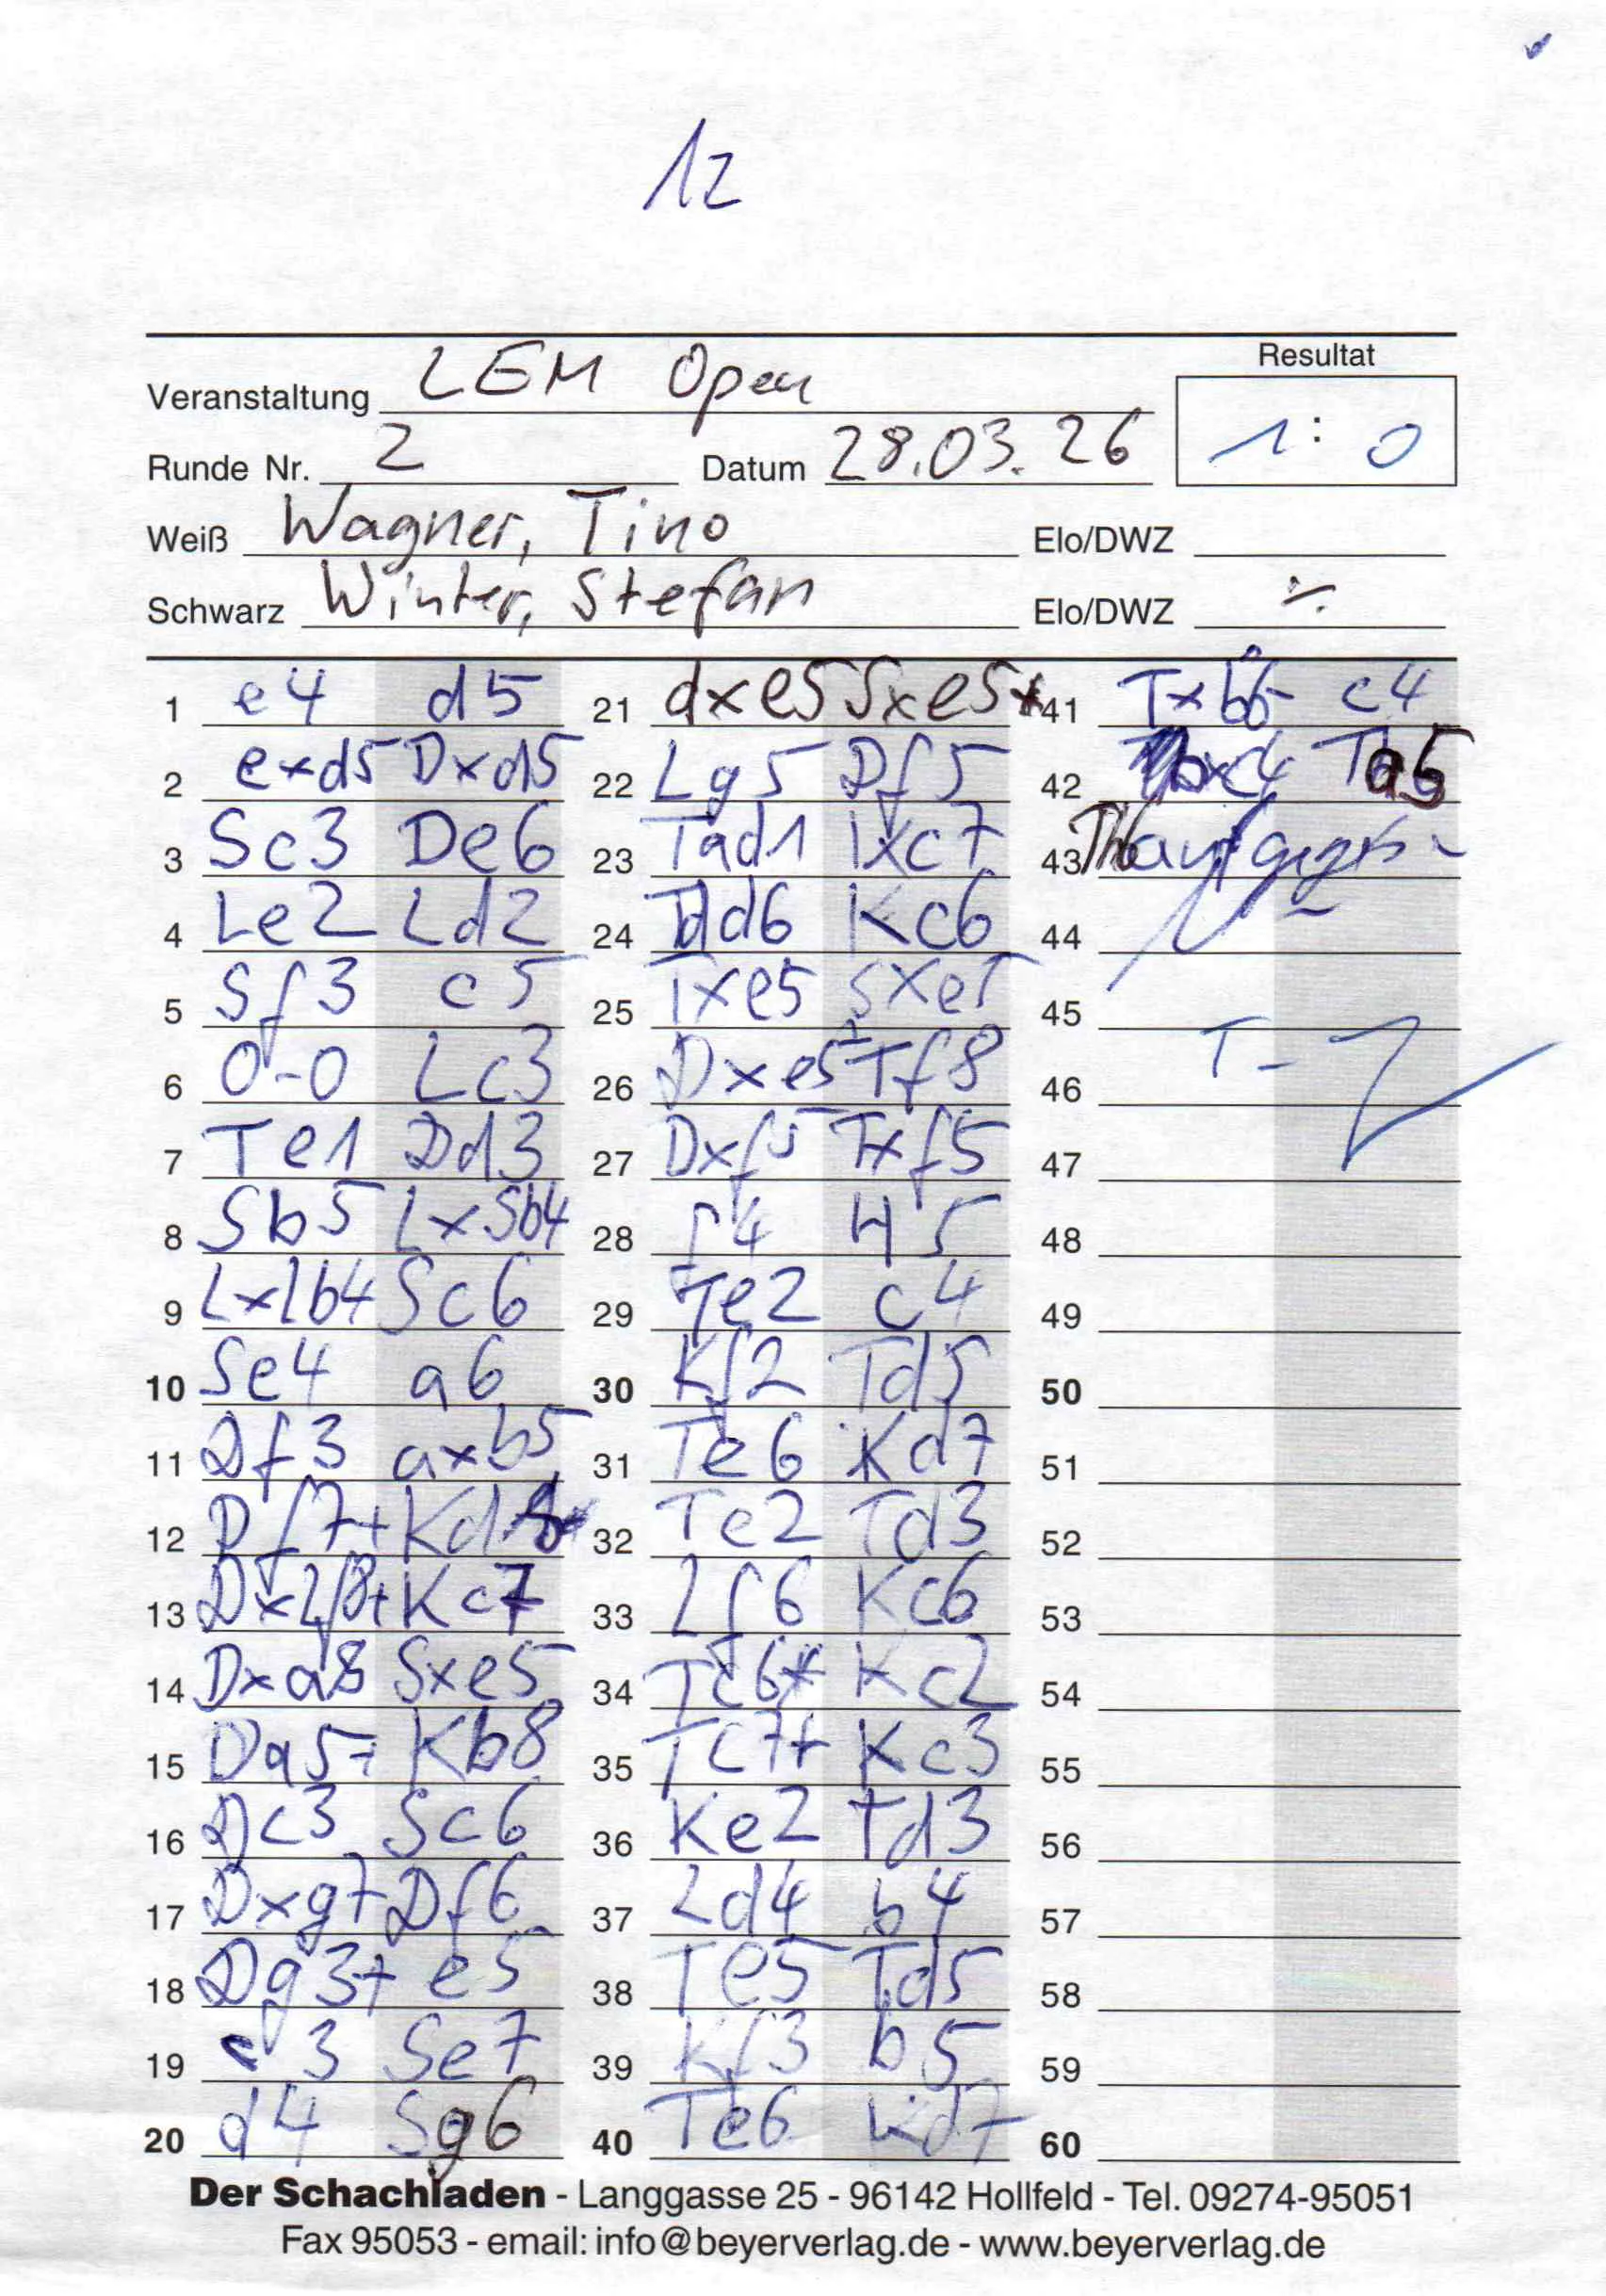 12
Resultat
Veranstaltung LEM Open
1 : 0
Runde Nr. 2 Datum 28.03.26
Weiß Wagner, Tino Elo/DWZ
Schwarz Winter, Stefan Elo/DWZ ./.
1 e4 d5
2 exd5 Dxd5
3 Sc3 De6
4 Le2 Ld2
5 Sf3 c5
6 0-0 Lc3
7 Te1 Dd3
8 Sb5 LxSb4
9 LxLb4 Sc6
10 Se4 a6
11 Df3 axb5
12 Df7+ Kd8
13 DxLf8+ Kc7
14 Dxa8 Sxe5
15 Da5+ Kb8
16 Dc3 Sc6
17 Dxg7 Df6
18 Dg3+ e5
19 c3 Se7
20 d4 Sg6
21 dxe5 Sxe5+
22 Lg5 Df5
23 Tad1 Txc7
24 Td6 Kc6
25 Txe5 Sxe5
26 Dxe5+ Tf8
27 Dxf5 Txf5
28 f4 H5
29 Te2 c4
30 Kf2 Td5
31 Te6 Kd7
32 Te2 Td3
33 Lf6 Kc6
34 Tc6+ Kc2
35 Tc7+ Kc3
36 Ke2 Td3
37 Ld4 b4
38 Te5 Td5
39 Kf3 b5
40 Te6 Kd7
41 Txb6 c4
42 bxc4 Ta5
43 Tb6 aufgegeben
44
45
46
47
48
49
50
51
52
53
54
55
56
57
58
59
60
Der Schachladen - Langgasse 25 - 96142 Hollfeld - Tel. 09274-95051
Fax 95053 - email: info@beyerverlag.de - www.beyerverlag.de